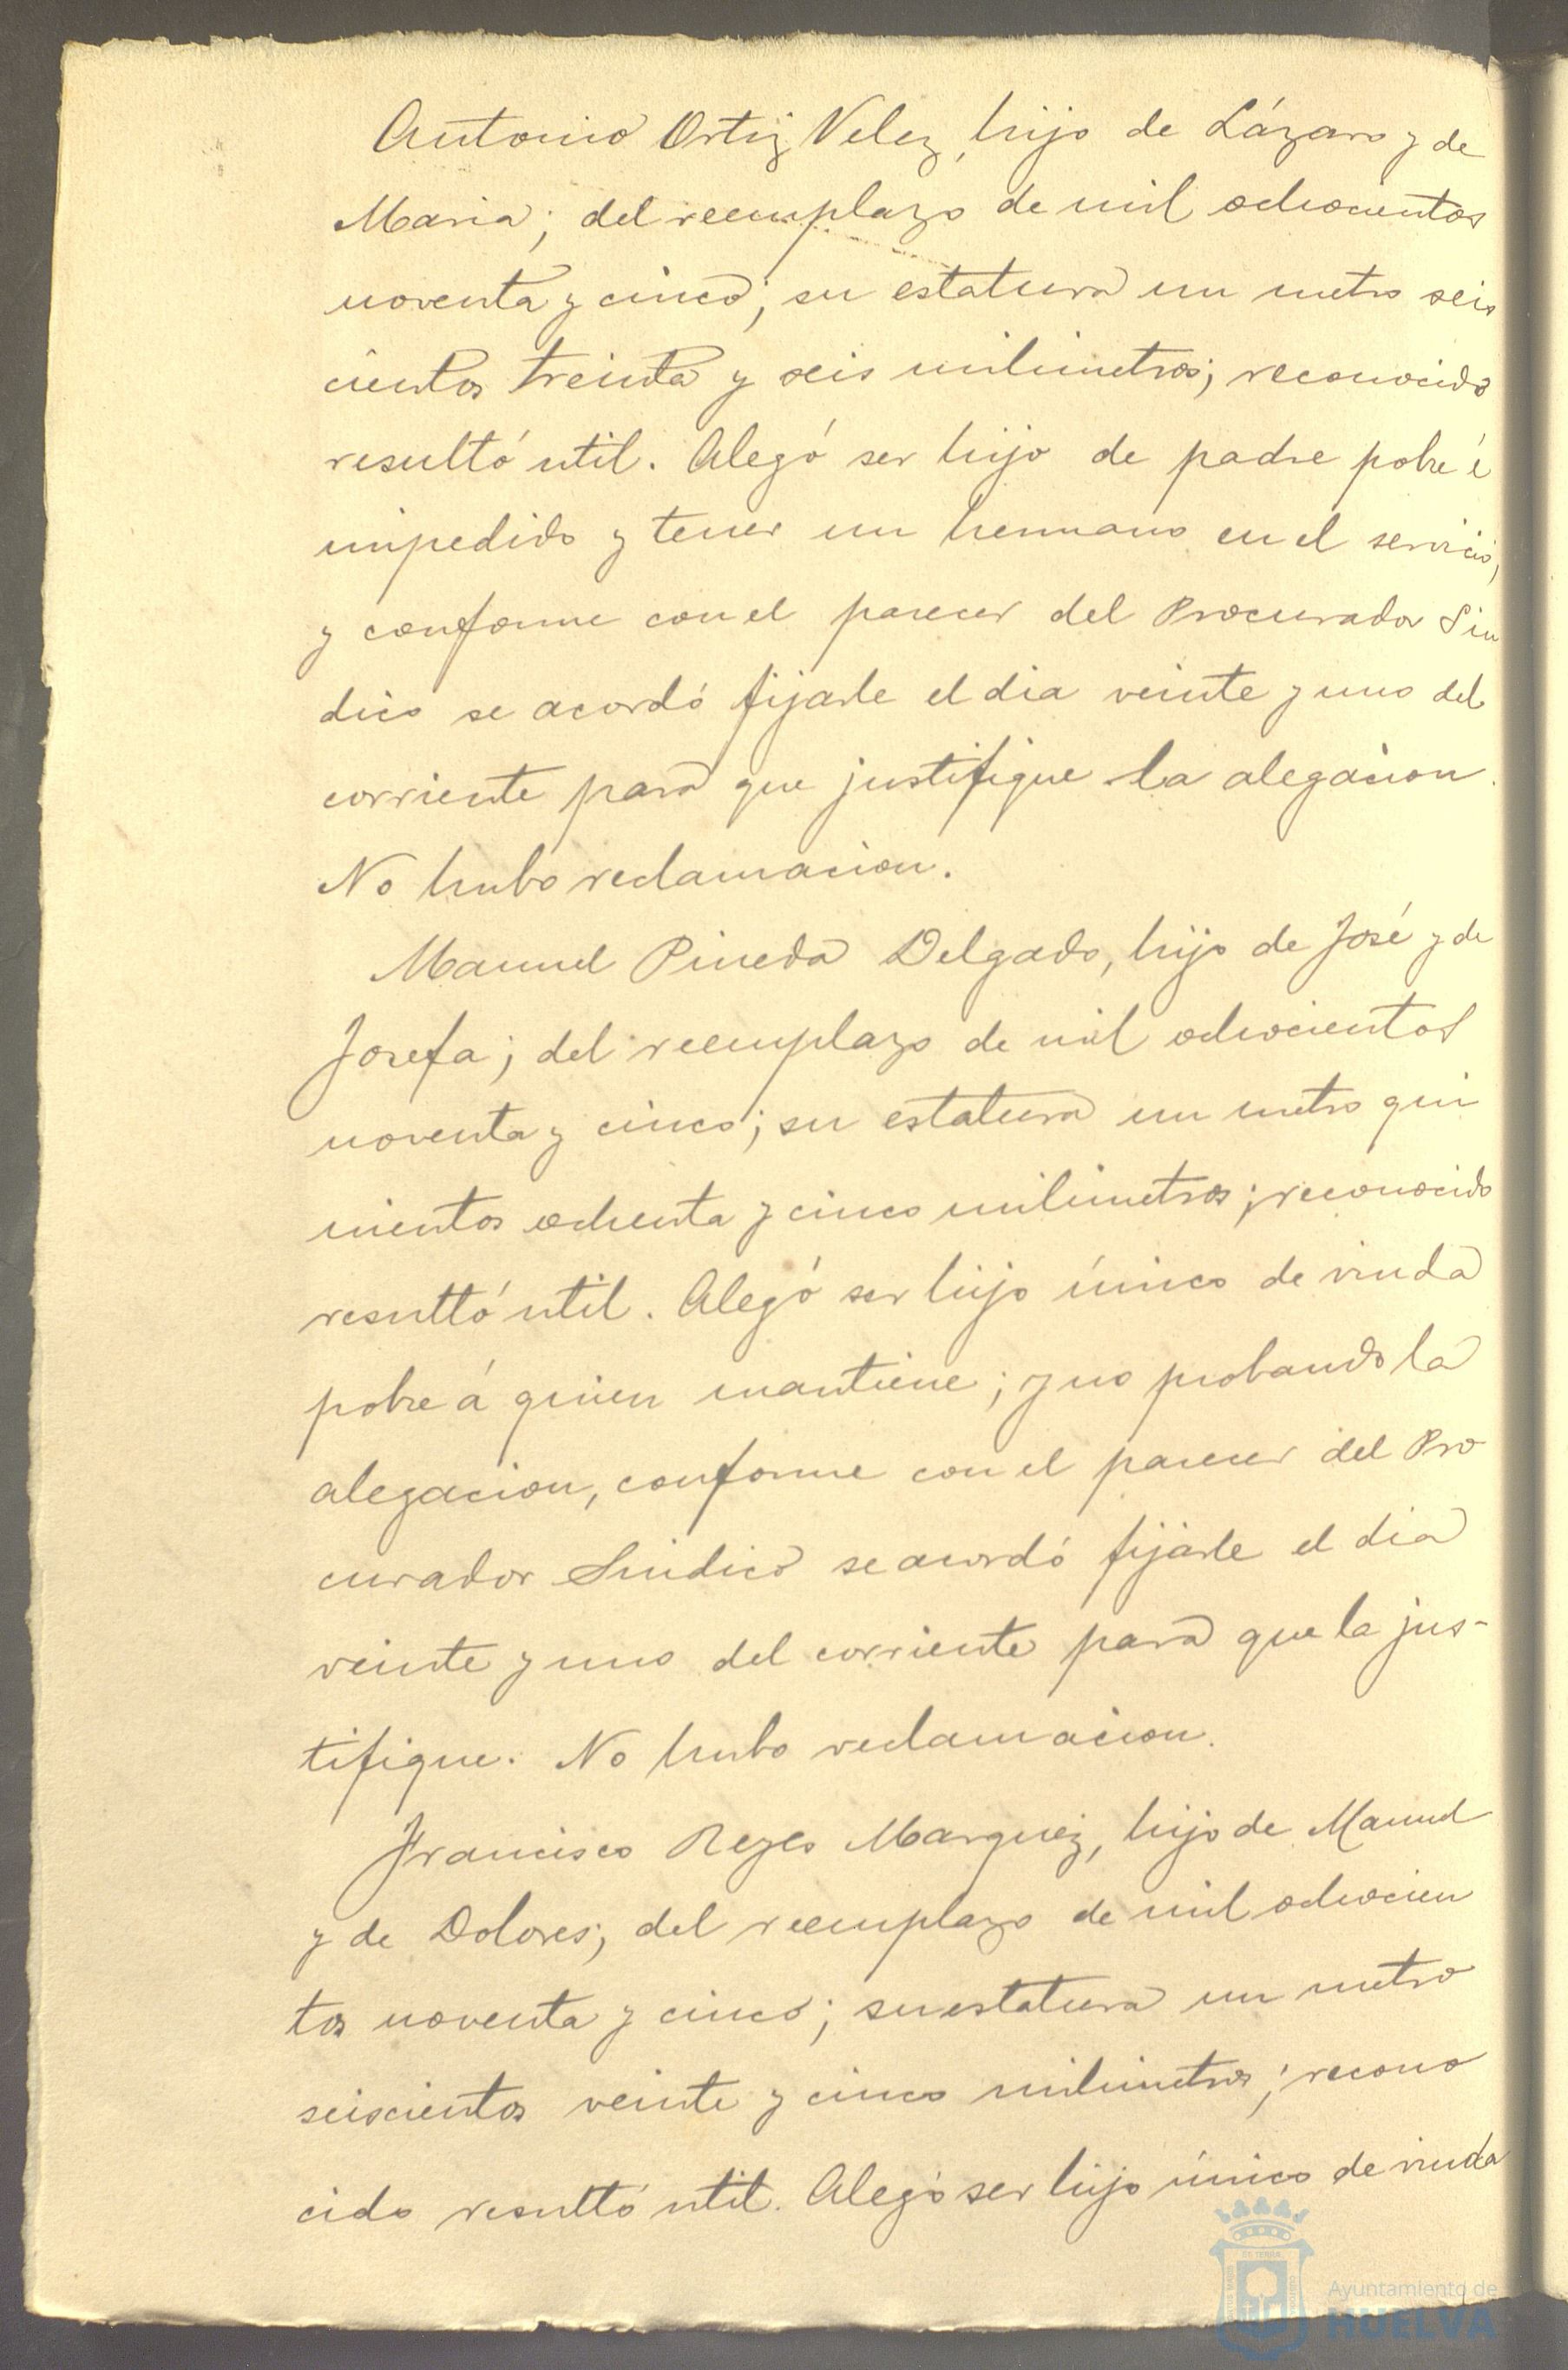 Antonio Ortiz Velez, hijo de Lázaro y de
Maria; del reemplazo de mil ochocientos
noventa y cinco; su estatura un metro seis
cientos treinta y seis milimetros; reconocido
resultó util. Alegó ser hijo de padre pobre é
impedido y tener un hermano en el servicio;
y conforme con el parecer del Procurador Sin
dico se acordó fijarle el dia veinte y uno del
corriente para que justifique la alegacion.
No hubo reclamacion.
Manuel Pineda Delgado, hijo de José y de
Josefa; del reemplazo de mil ochocientos
noventa y cinco; su estatura un metro qui
nientos ochenta y cinco milimetros; reconocido
resultó util. Alegó ser hijo único de viuda
pobre á quien mantiene; y no probando la
alegacion, conforme con el parecer del Pro
curador Sindico se acordó fijarle el dia
veinte y uno del corriente para que la jus-
tifique. No hubo reclamacion.
Francisco Reyes Marquez, hijo de Manuel
y de Dolores; del reemplazo de mil ochocien
tos noventa y cinco; su estatura un metro
seiscientos veinte y cinco milimetros; recono
cido resultó util. Alegó ser hijo único de viuda
Ayuntamiento de
HUELVA